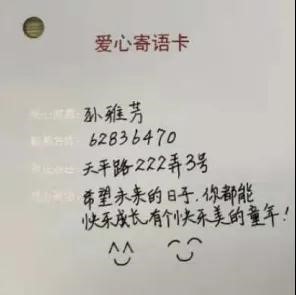 爱心寄语卡
孙雅芳
62836470
天平路222弄3号
希望未来的日子,你都能
快乐成长有个快乐美的童年!